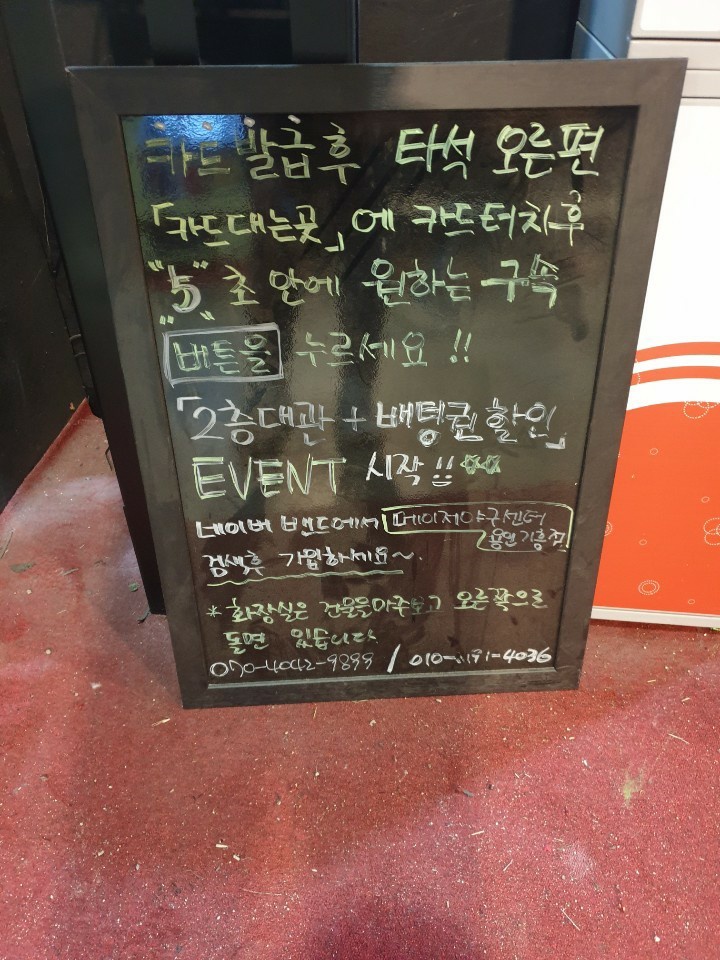 카드 발급후 타석 오른편
「카드대는곳」에 카드터치후
"5"초 안에 원하는 구속
버튼을 누르세요 !!
「2층대관 + 배팅권 할인」
EVENT 시작 !!
네이버 밴드에서 메이저야구센터
용인기흥점
검색후 가입하세요~.
* 화장실은 건물을마주보고 오른쪽으로
돌면 있습니다
070-4042-9899 /